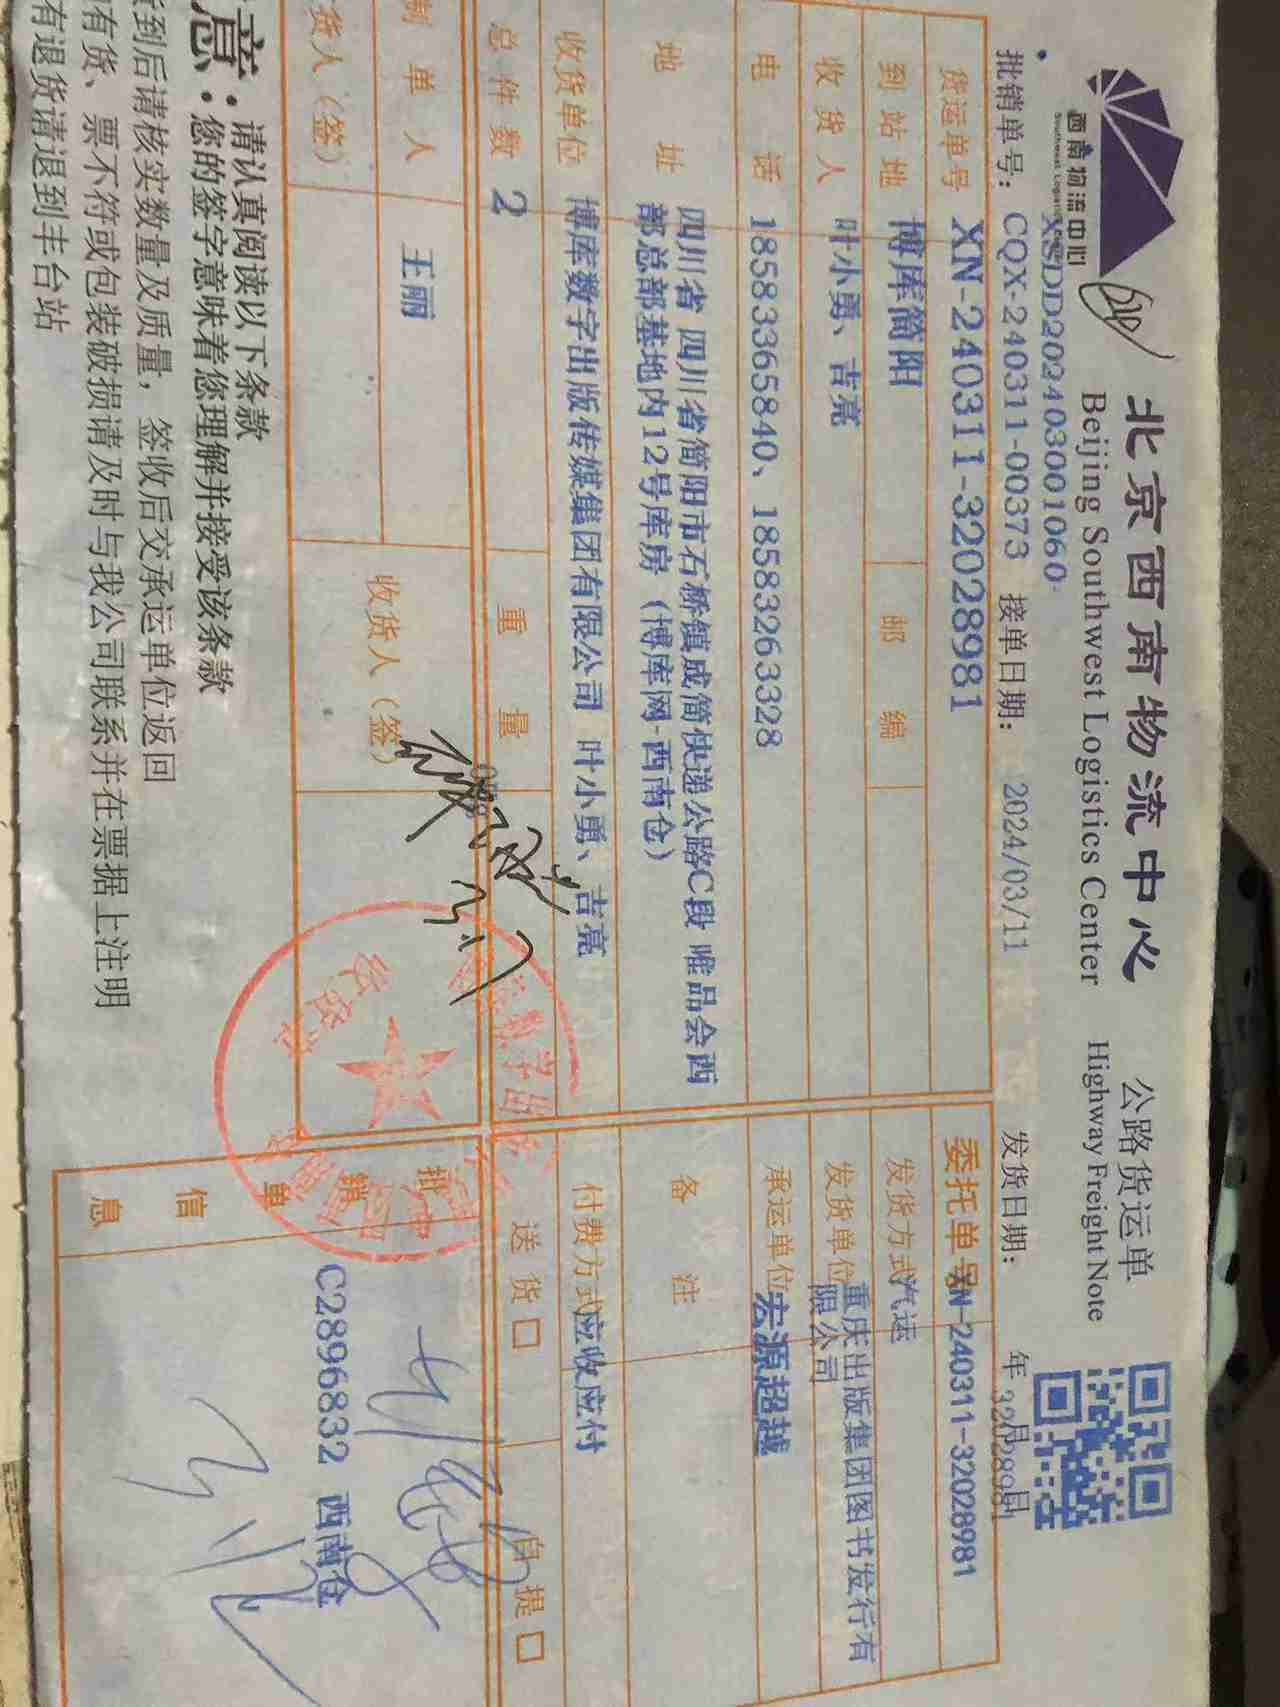 西南物流中心
北京西南物流中心
公路货运单
Beijing Southwest Logistics Center
Highway Freight Note
XSDD202403001060
批销单号: CQX-240311-00373 接单日期: 2024/03/11 发货日期: 年 月 日
32028981
货运单号 XN-240311-32028981 委托单号 XN-240311-32028981
到站地 博库简阳 邮编 发货方式 汽运
收货人 叶小勇、吉亮 发货单位 重庆出版集团图书发行有
限公司
电话 18583365840、18583263328 承运单位 宏源超越
地址 四川省 四川省简阳市石桥镇成简快递公路C段 唯品会西
部总部基地内12号库房（博库网-西南仓） 备注
收货单位 博库数字出版传媒集团有限公司 叶小勇、吉亮 付费方式 应收应付
总件数 2 重量 送货□ 自提□
制单人 王丽 收货人（签）
货人（签）
批销单信息 C2896832 西南仓
意：请认真阅读以下条款
您的签字意味着您理解并接受该条款
到后请核实数量及质量，签收后交承运单位返回
有货、票不符或包装破损请及时与我公司联系并在票据上注明
有退货请退到丰台站